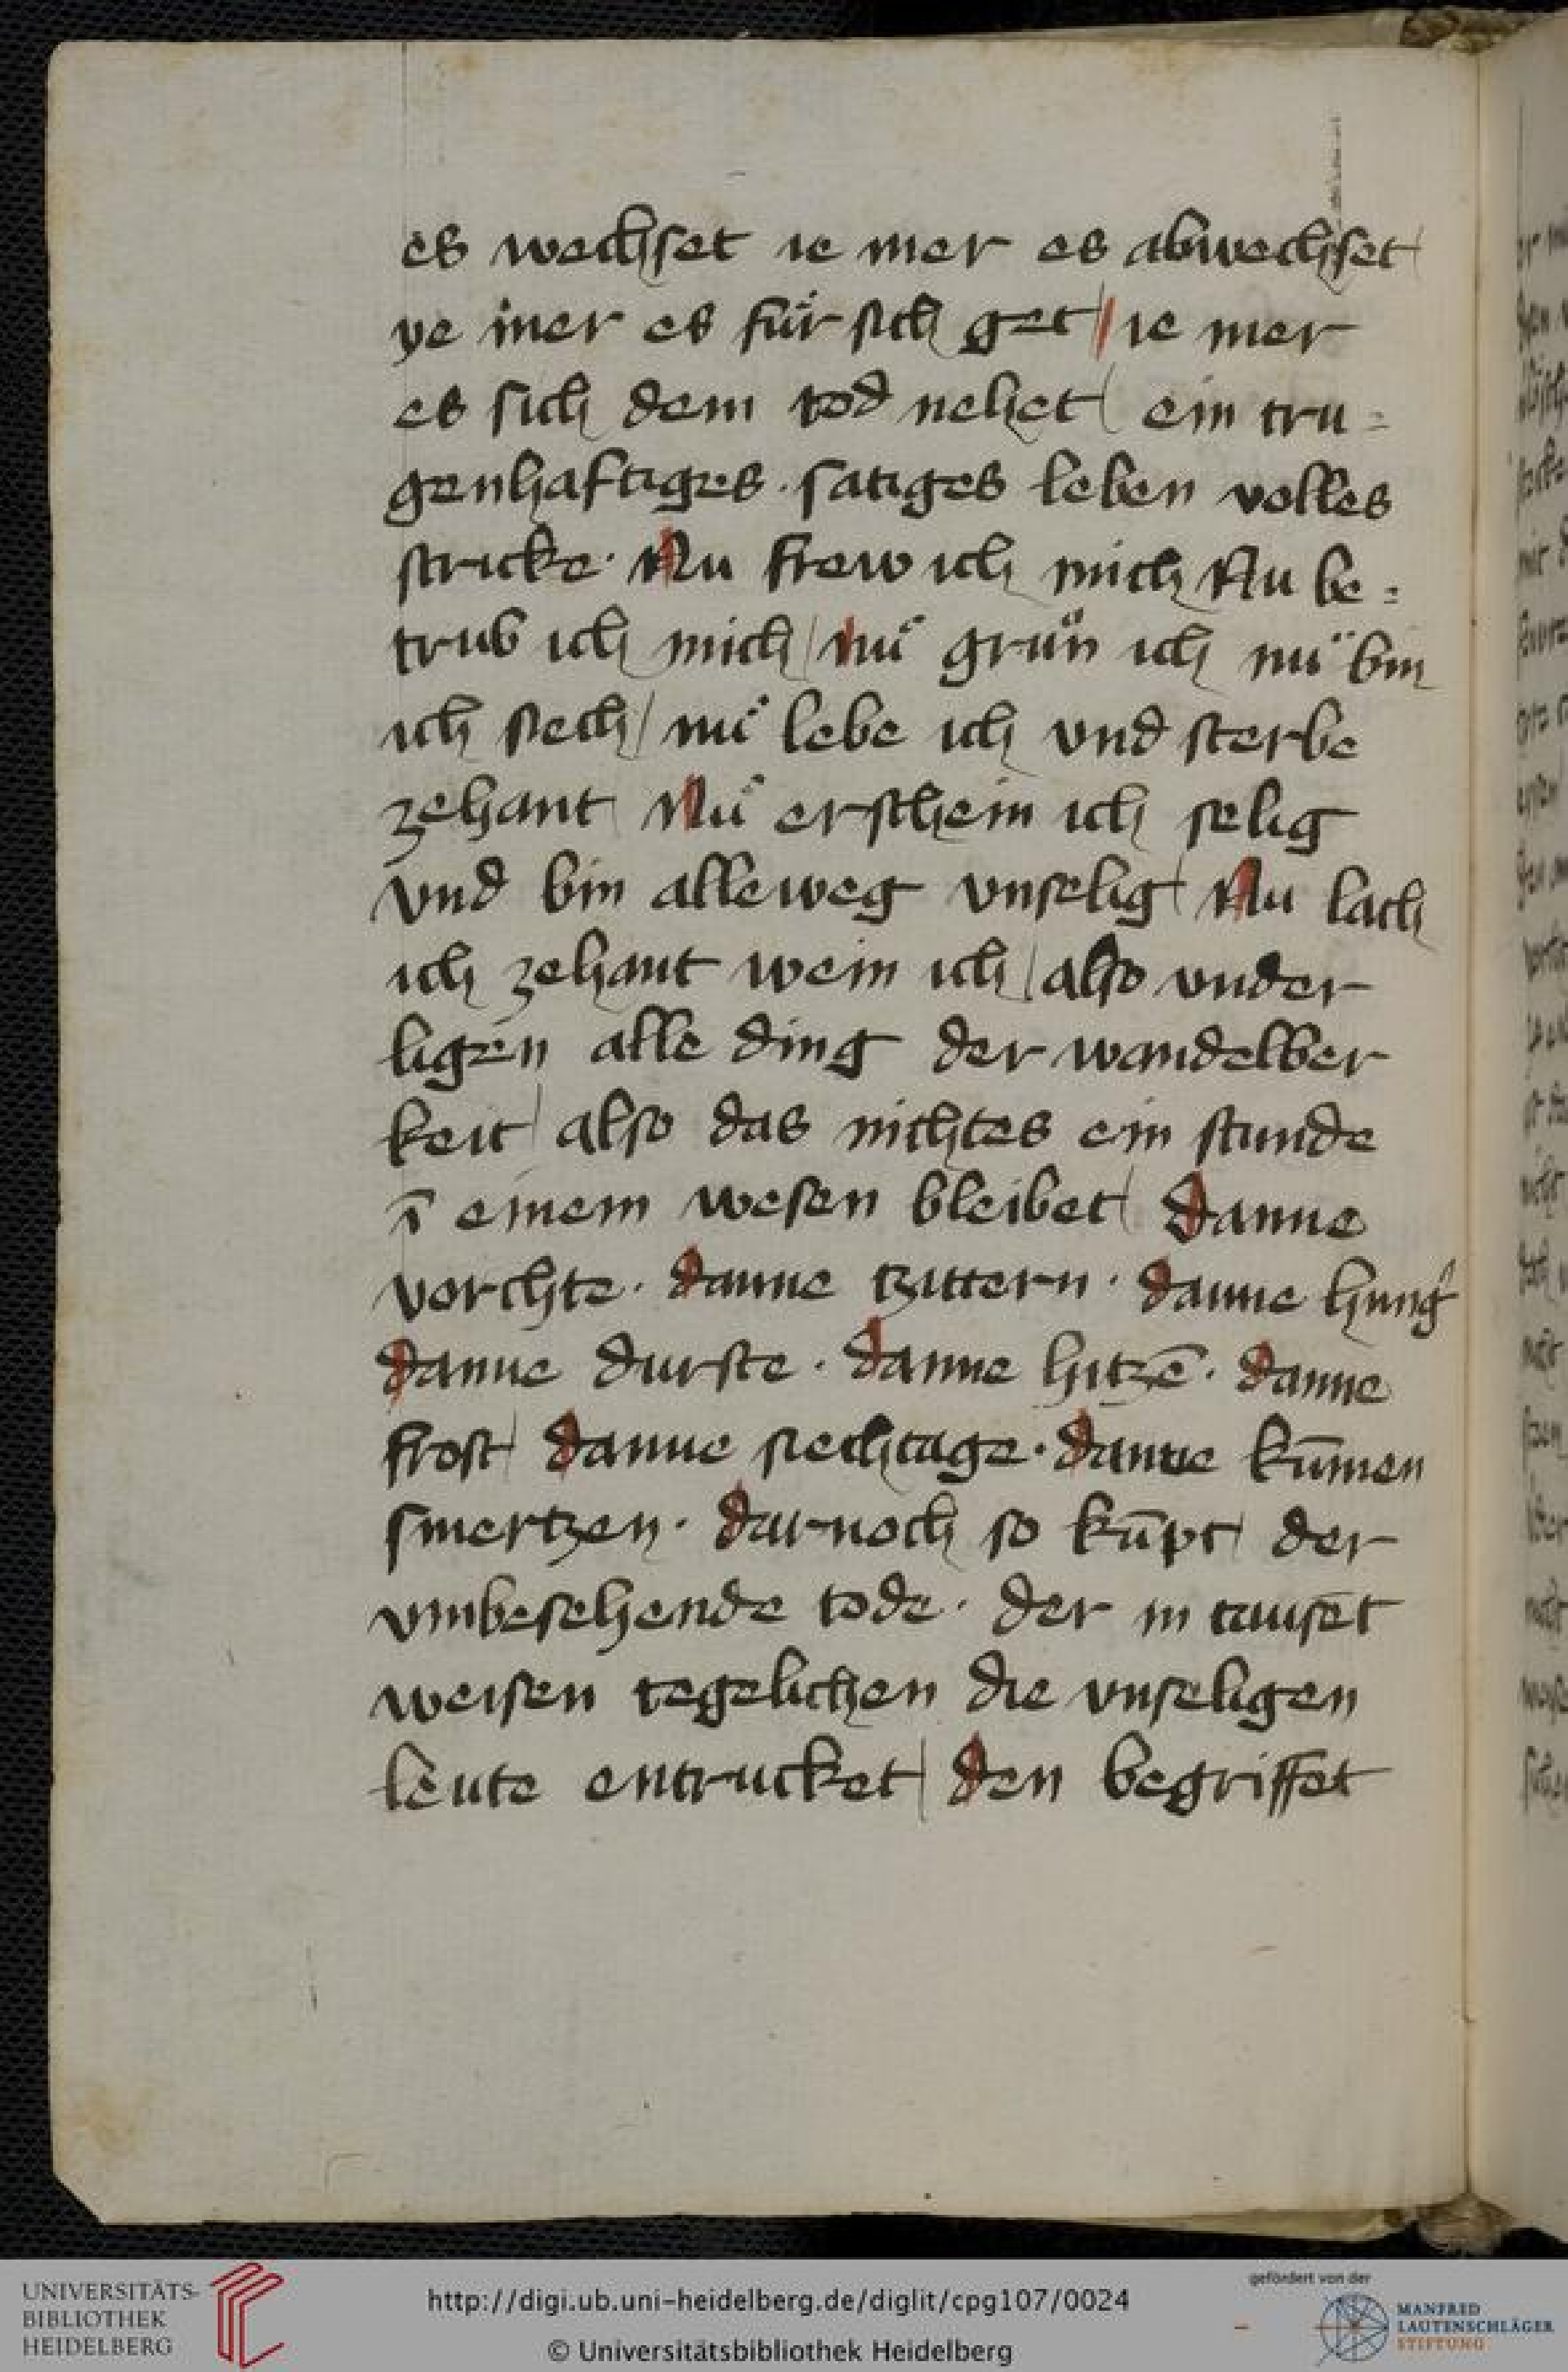 es wechset ie mer es abwechset
ye mer es für sich get / ie mer
es sich dem tod nehet / ein tru=
genhaftiges · satiges leben volles
stricke · Nu frew ich mich Nu be=
trub ich mich / nu grün ich nu bin
ich siech / nu lebe ich vnd sterbe
zehant Nu erschein ich selig
vnd bin alleweg vnselig Nu lach
ich zehant wein ich / also vnder
ligen alle ding der wandelber
keit / also das nichtes ein stunde
ī einem wesen bleibet / danne
vorchte · danne tzittern · danne hung'
danne durste · danne hitzē · danne
frost / danne siechtage · danne kūmen
smertzen · darnoch so kūpt der
vmbesehende tode · der in tausēt
weisen tegelichen die vnseligen
leute entrucket / den begriffet
UNIVERSITÄTS-
BIBLIOTHEK
HEIDELBERG
http://digi.ub.uni-heidelberg.de/diglit/cpg107/0024
© Universitätsbibliothek Heidelberg
gefördert von der
MANFRED
LAUTENSCHLÄGER
STIFTUNG